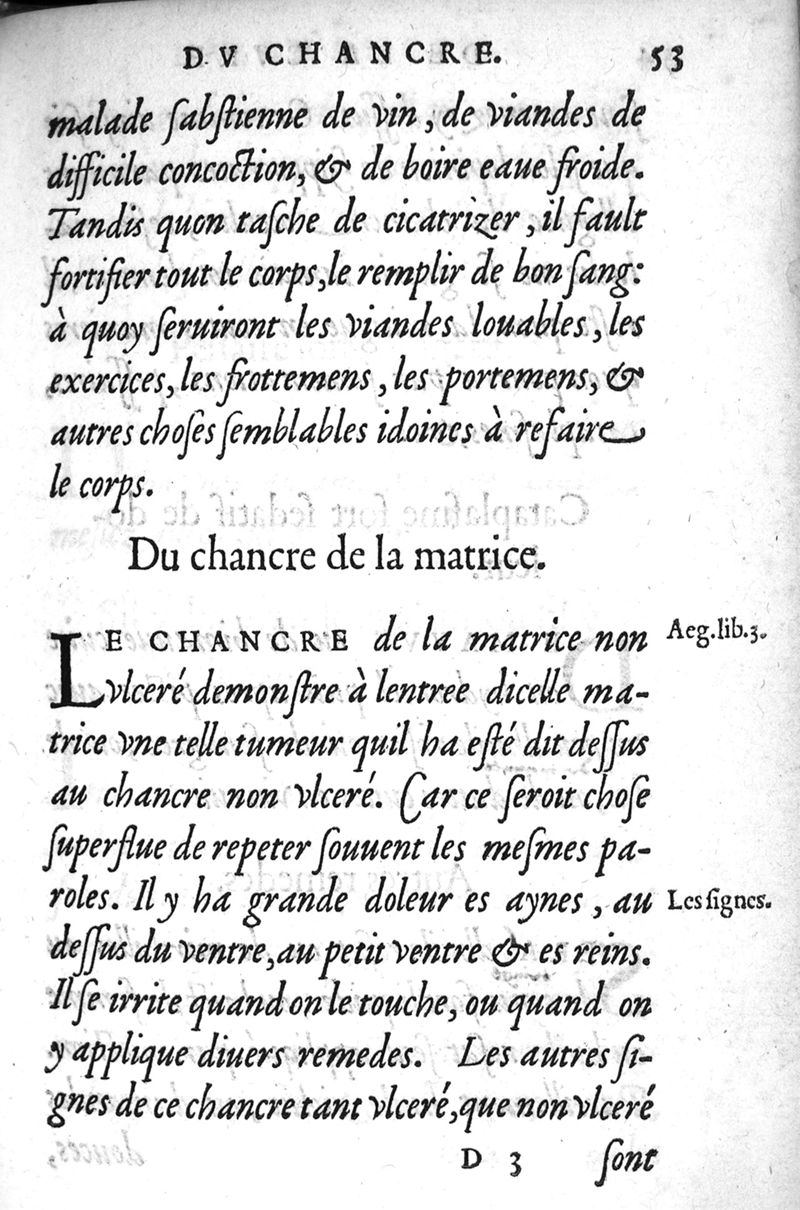 DV CHANCRE. 53
malade ſabſtienne de vin, de viandes de
difficile concoction, & de boire eaue froide.
Tandis quon taſche de cicatrizer, il fault
fortifier tout le corps, le remplir de bon ſang:
à quoy ſeruiront les viandes louables, les
exercices, les frottemens, les portemens, &
autres choſes ſemblables idoines à refaire
le corps.
Du chancre de la matrice.
LE CHANCRE de la matrice non Aeg.lib.3.
vlceré demonſtre à lentree dicelle ma-
trice vne telle tumeur quil ha eſté dit deſſus
au chancre non vlceré. Car ce ſeroit choſe
ſuperflue de repeter ſouuent les meſmes pa-
roles. Il y ha grande doleur es aynes, au Les ſignes.
deſſus du ventre, au petit ventre & es reins.
Il ſe irrite quand on le touche, ou quand on
y applique diuers remedes. Les autres ſi-
gnes de ce chancre tant vlceré, que non vlceré
D 3 ſont